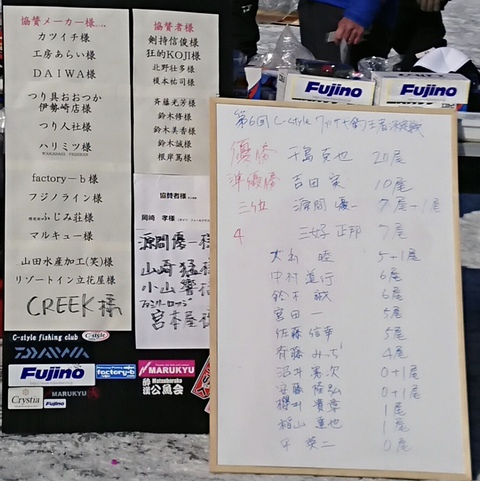 協賛メーカー様…
カツイチ様
工房あらい様
DAIWA様
つり具おおつか
伊勢崎店様
つり人社様
ハリミツ様
factory-b様
フジノライン様
ふじみ荘様
マルキュー様
山田水産加工(笑)様
リゾートイン立花屋様
CREEK様
協賛者様
剣持信俊様
狂的KOJI様
北野壮多様
榎本祐司様
斉藤光芳様
鈴木修様
鈴木美香様
鈴木誠様
根岸萬様
協賛者様
岡崎 孝様
源間優一様
山崎猛様
小山響様
宮本屋様
C-style fishing club
C-style
DAIWA
Fujino
factory-b
MARUKYU
Crystia
Fujino
MARUKYU
公魚会
Fujino
Fujino
第6回 C-style
優勝 千島克也 20尾
準優勝 吉田 実 10尾
三位 源間優一 7尾-1尾
4 三好正邦 7尾
大山 睦 5+1尾
中村 6尾
鈴木 誠 6尾
宮田 一 5尾
佐藤信幸 5尾
斉藤 4尾
沼井 0+1尾
安藤隆弘 0+1尾
櫻井 1尾
1尾
0尾